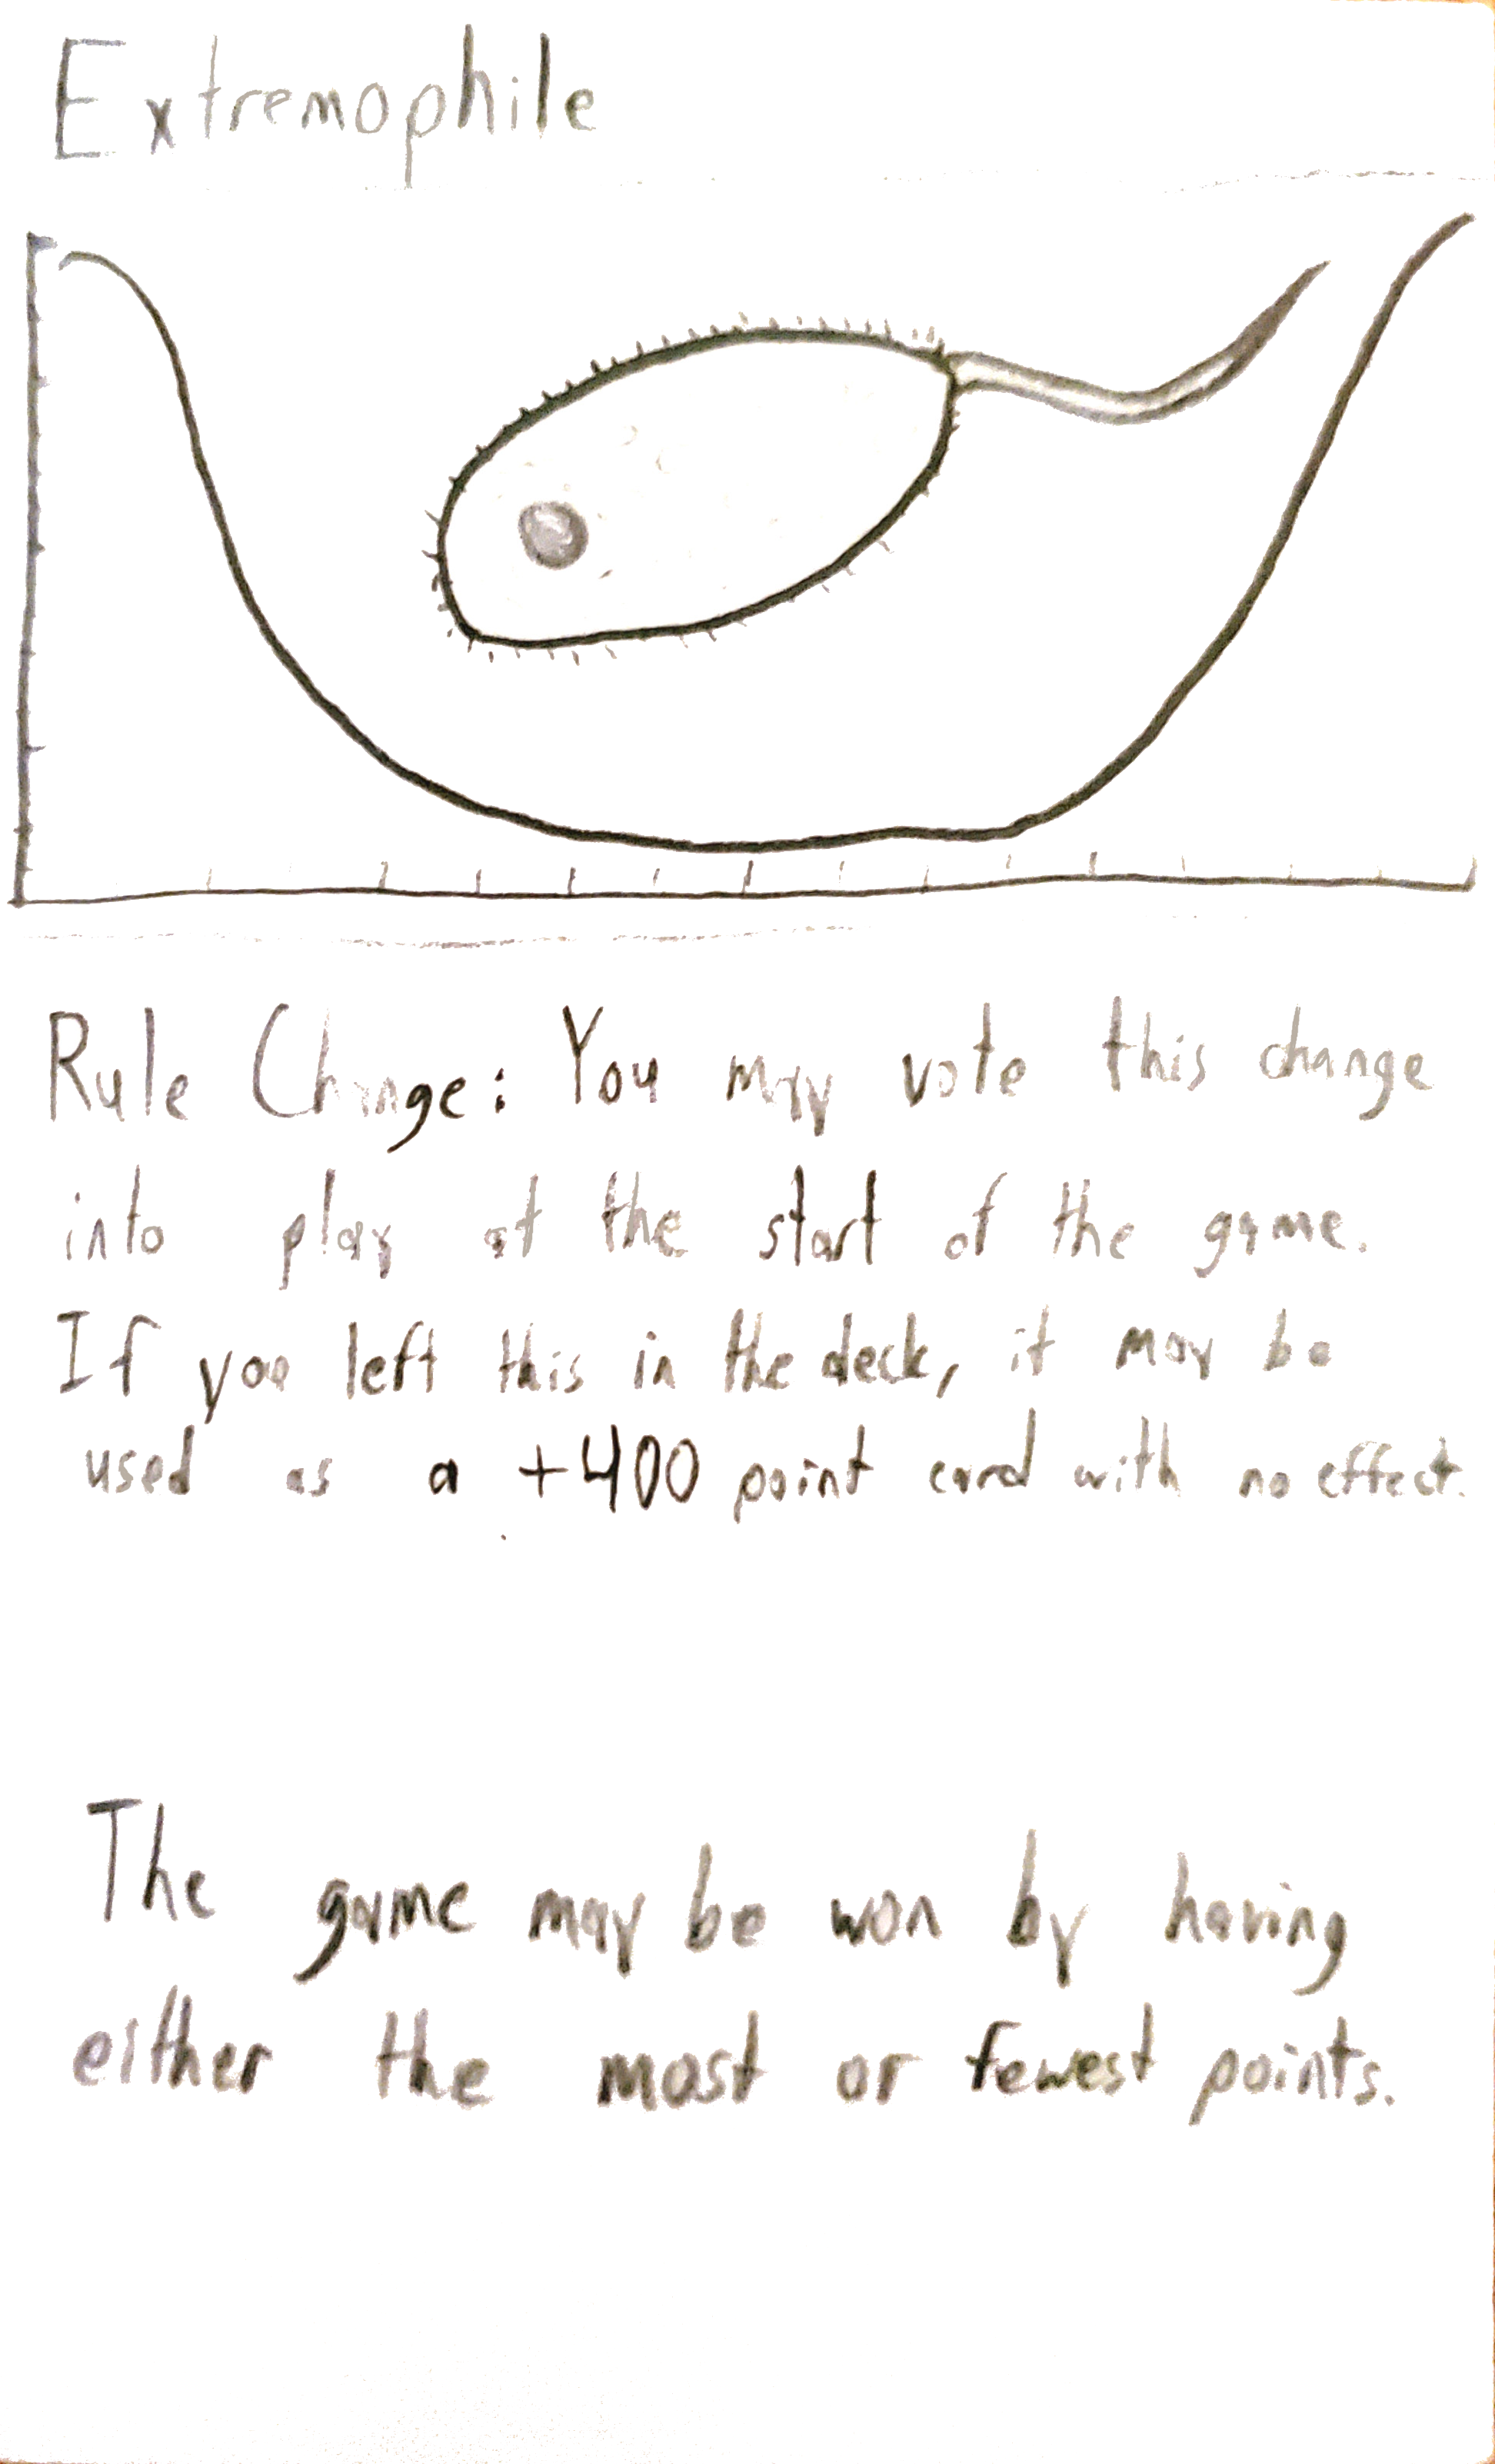 Extremophile
Rule Change: You may vote this change
into play at the start of the game.
If you left this in the deck, it may be
used as a +400 point card with no effect.
The game may be won by having
either the most or fewest points.